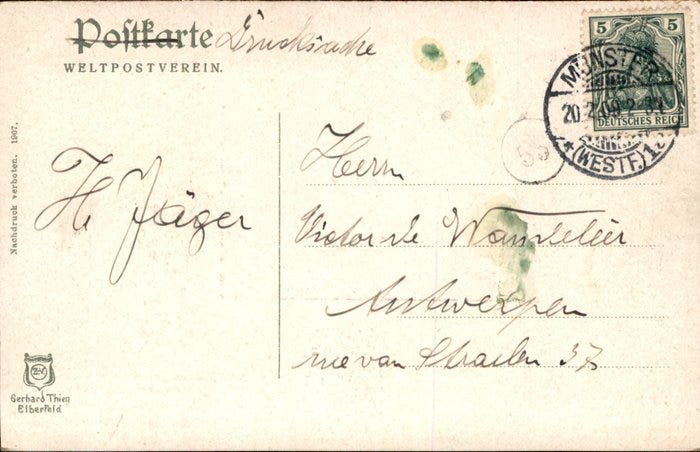 Postkarte Drucksache
WELTPOSTVEREIN.
5 5
DEUTSCHES REICH
MÜNSTER
20.2.09.2-3N
*(WESTF.)1
55
Nachdruck verboten. 1907.
H. Jäger
Herrn
Victor de
Antwerpen
rue van Straelen 37
Gerhard Thien
Elberfeld